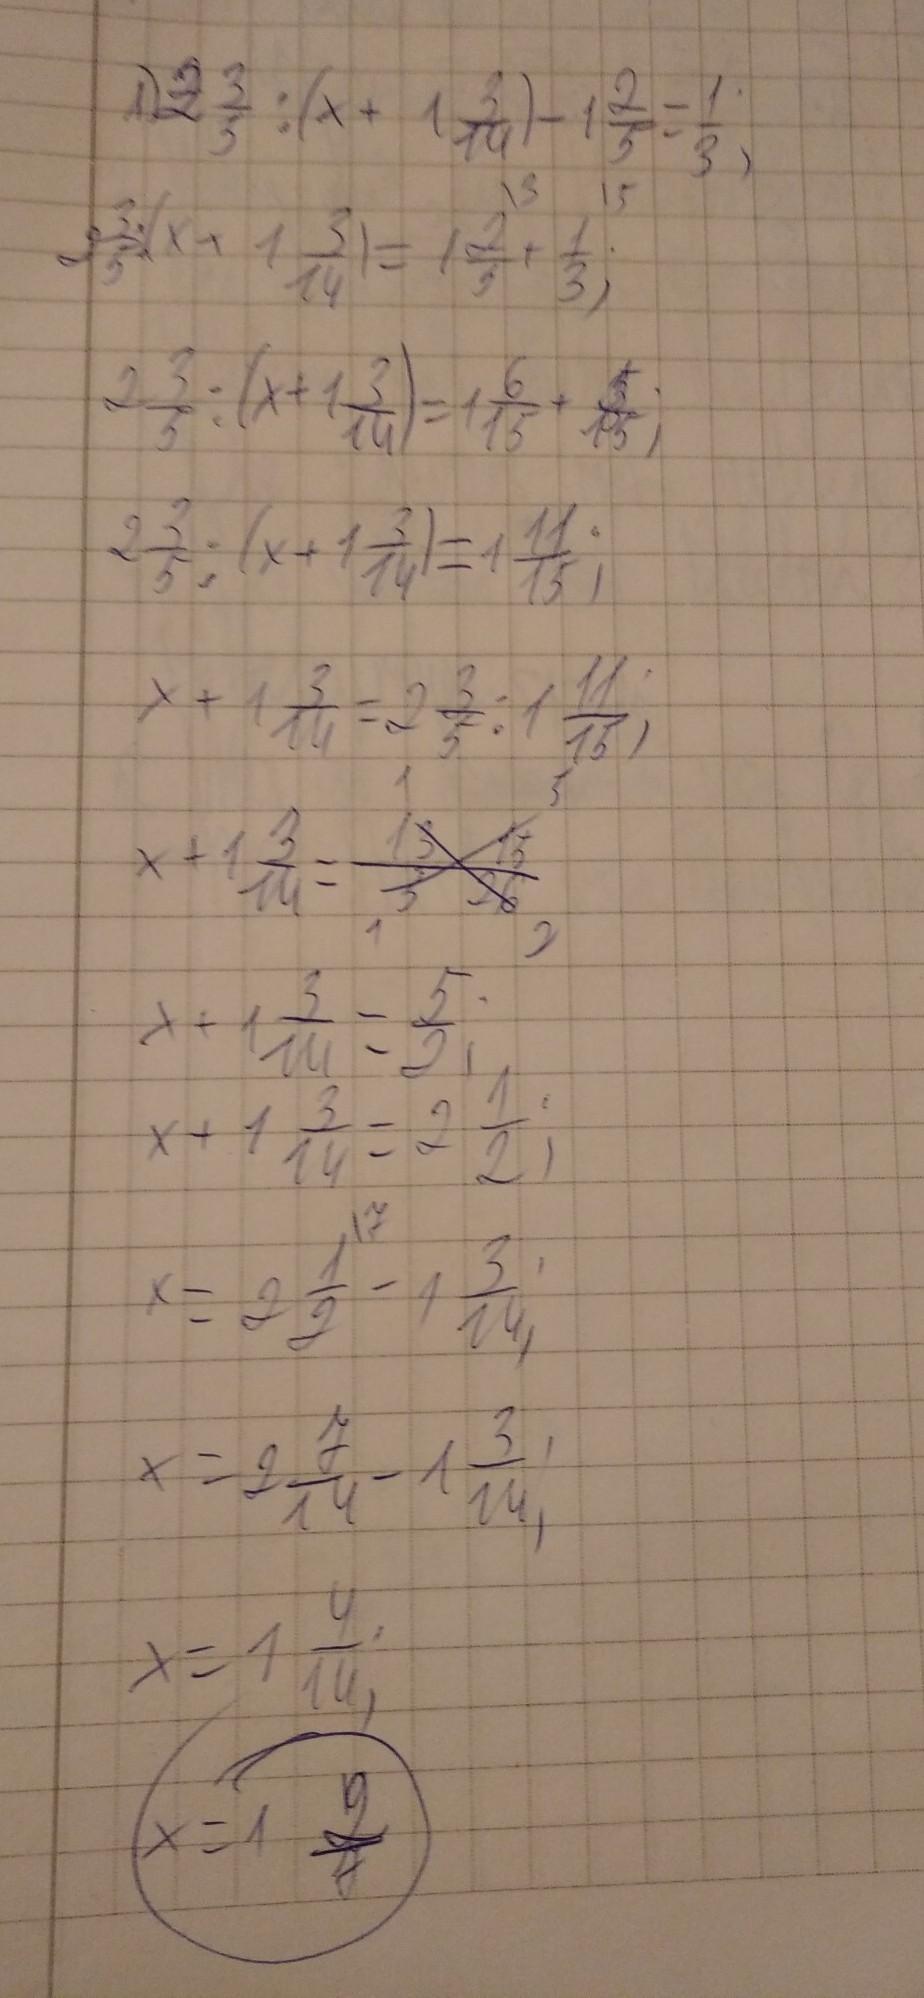 1) 2 3/5 : (x + 1 3/14) - 1 2/5 = 1/3;
2 3/5 : (x + 1 3/14) = 1 2/5 \3 + 1/3 \5;
2 3/5 : (x + 1 3/14) = 1 6/15 + 5/15;
2 3/5 : (x + 1 3/14) = 1 11/15;
x + 1 3/14 = 2 3/5 : 1 11/15;
1 5
x + 1 3/14 = 13 15 / 5 26
1 2
x + 1 3/14 = 5/2;
x + 1 3/14 = 2 1/2;
x = 2 1/2 \7 - 1 3/14;
x = 2 7/14 - 1 3/14;
x = 1 4/14;
x = 1 2/7